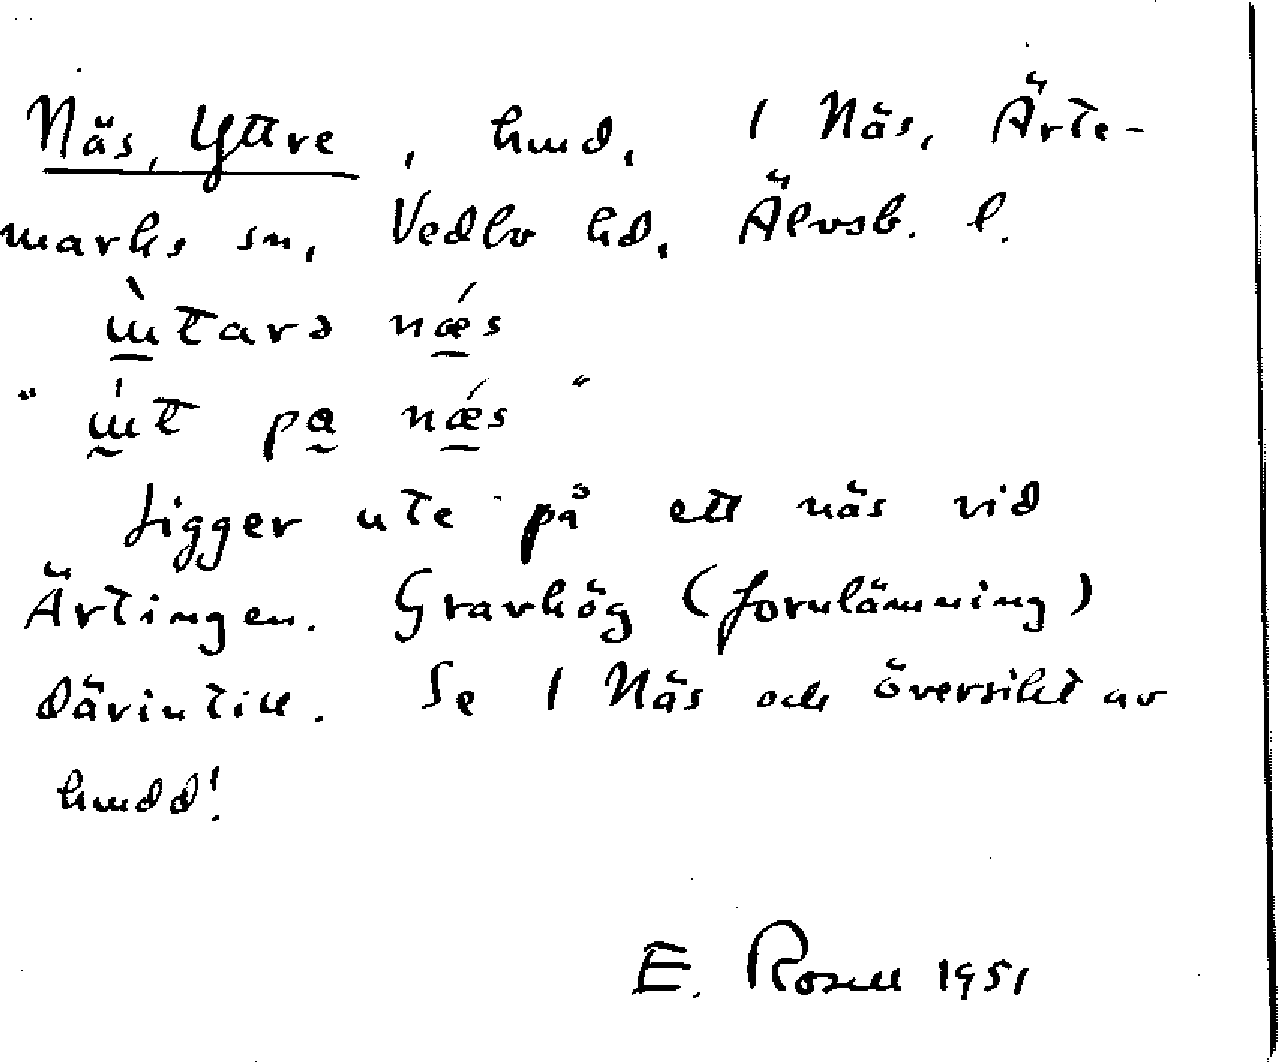 Näs, Yttre, hmd, 1 Näs, Ärte-
marks sn, Vedbo hd, Älvsb. l.
nǽs
nǽs"
Ligger ute på ett näs vid
Ärtingen. Gravhög (fornlämning)
därintill. Se 1 Näs och översikt av
hmdd!
E. Rosell 1951